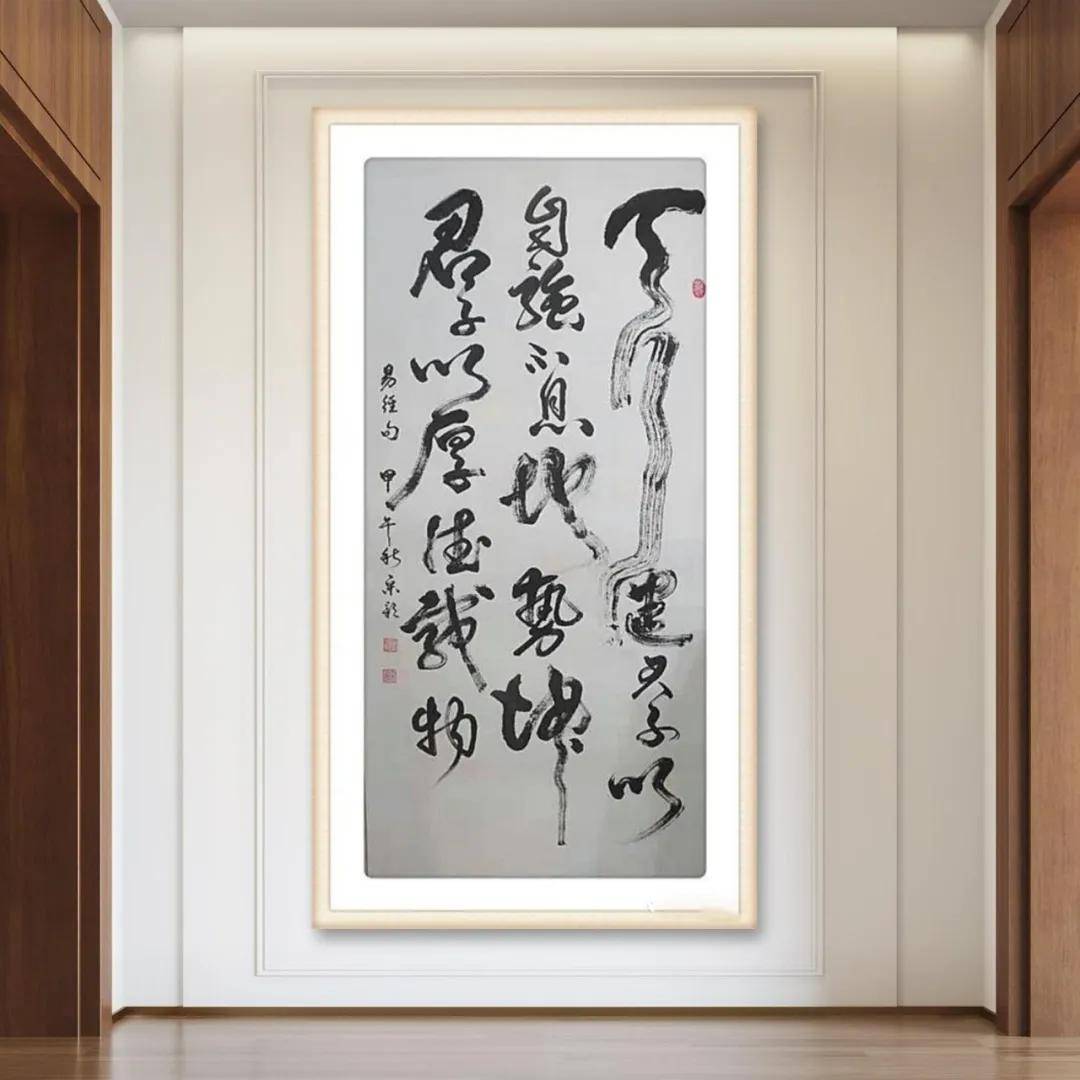 天行健君子以
自強不息地勢坤
君子以厚德載物
易經句 甲午秋